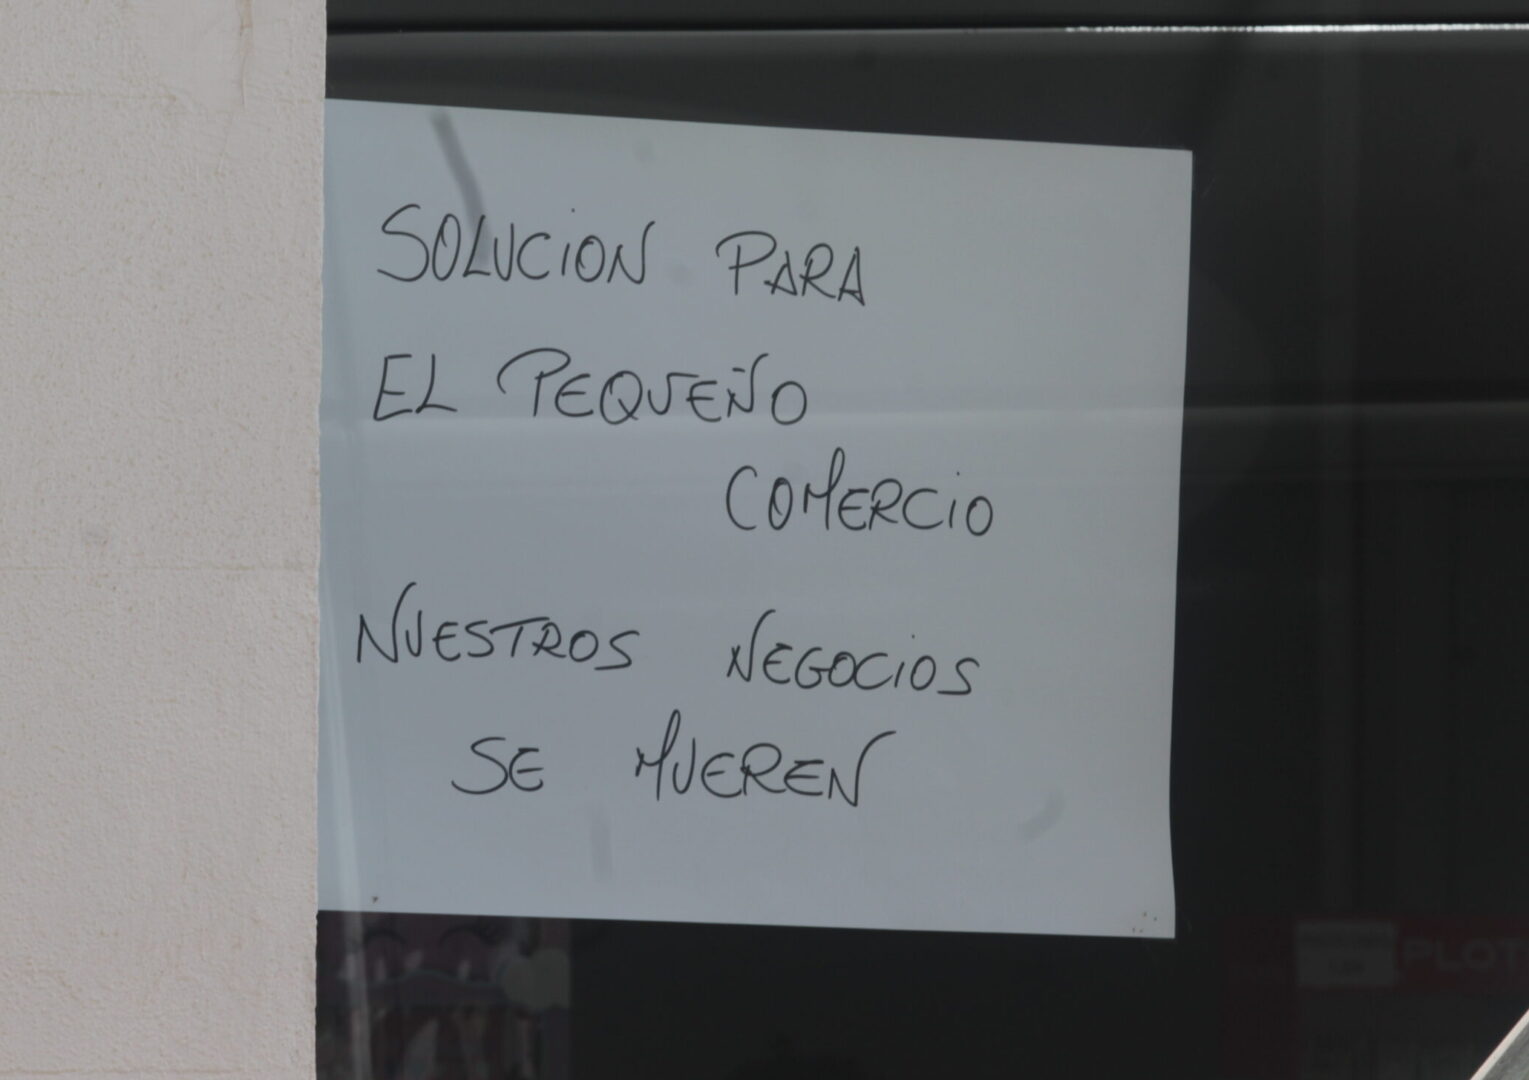 SOLUCION PARA
EL PEQUEÑO
COMERCIO
NUESTROS NEGOCIOS
SE MUEREN